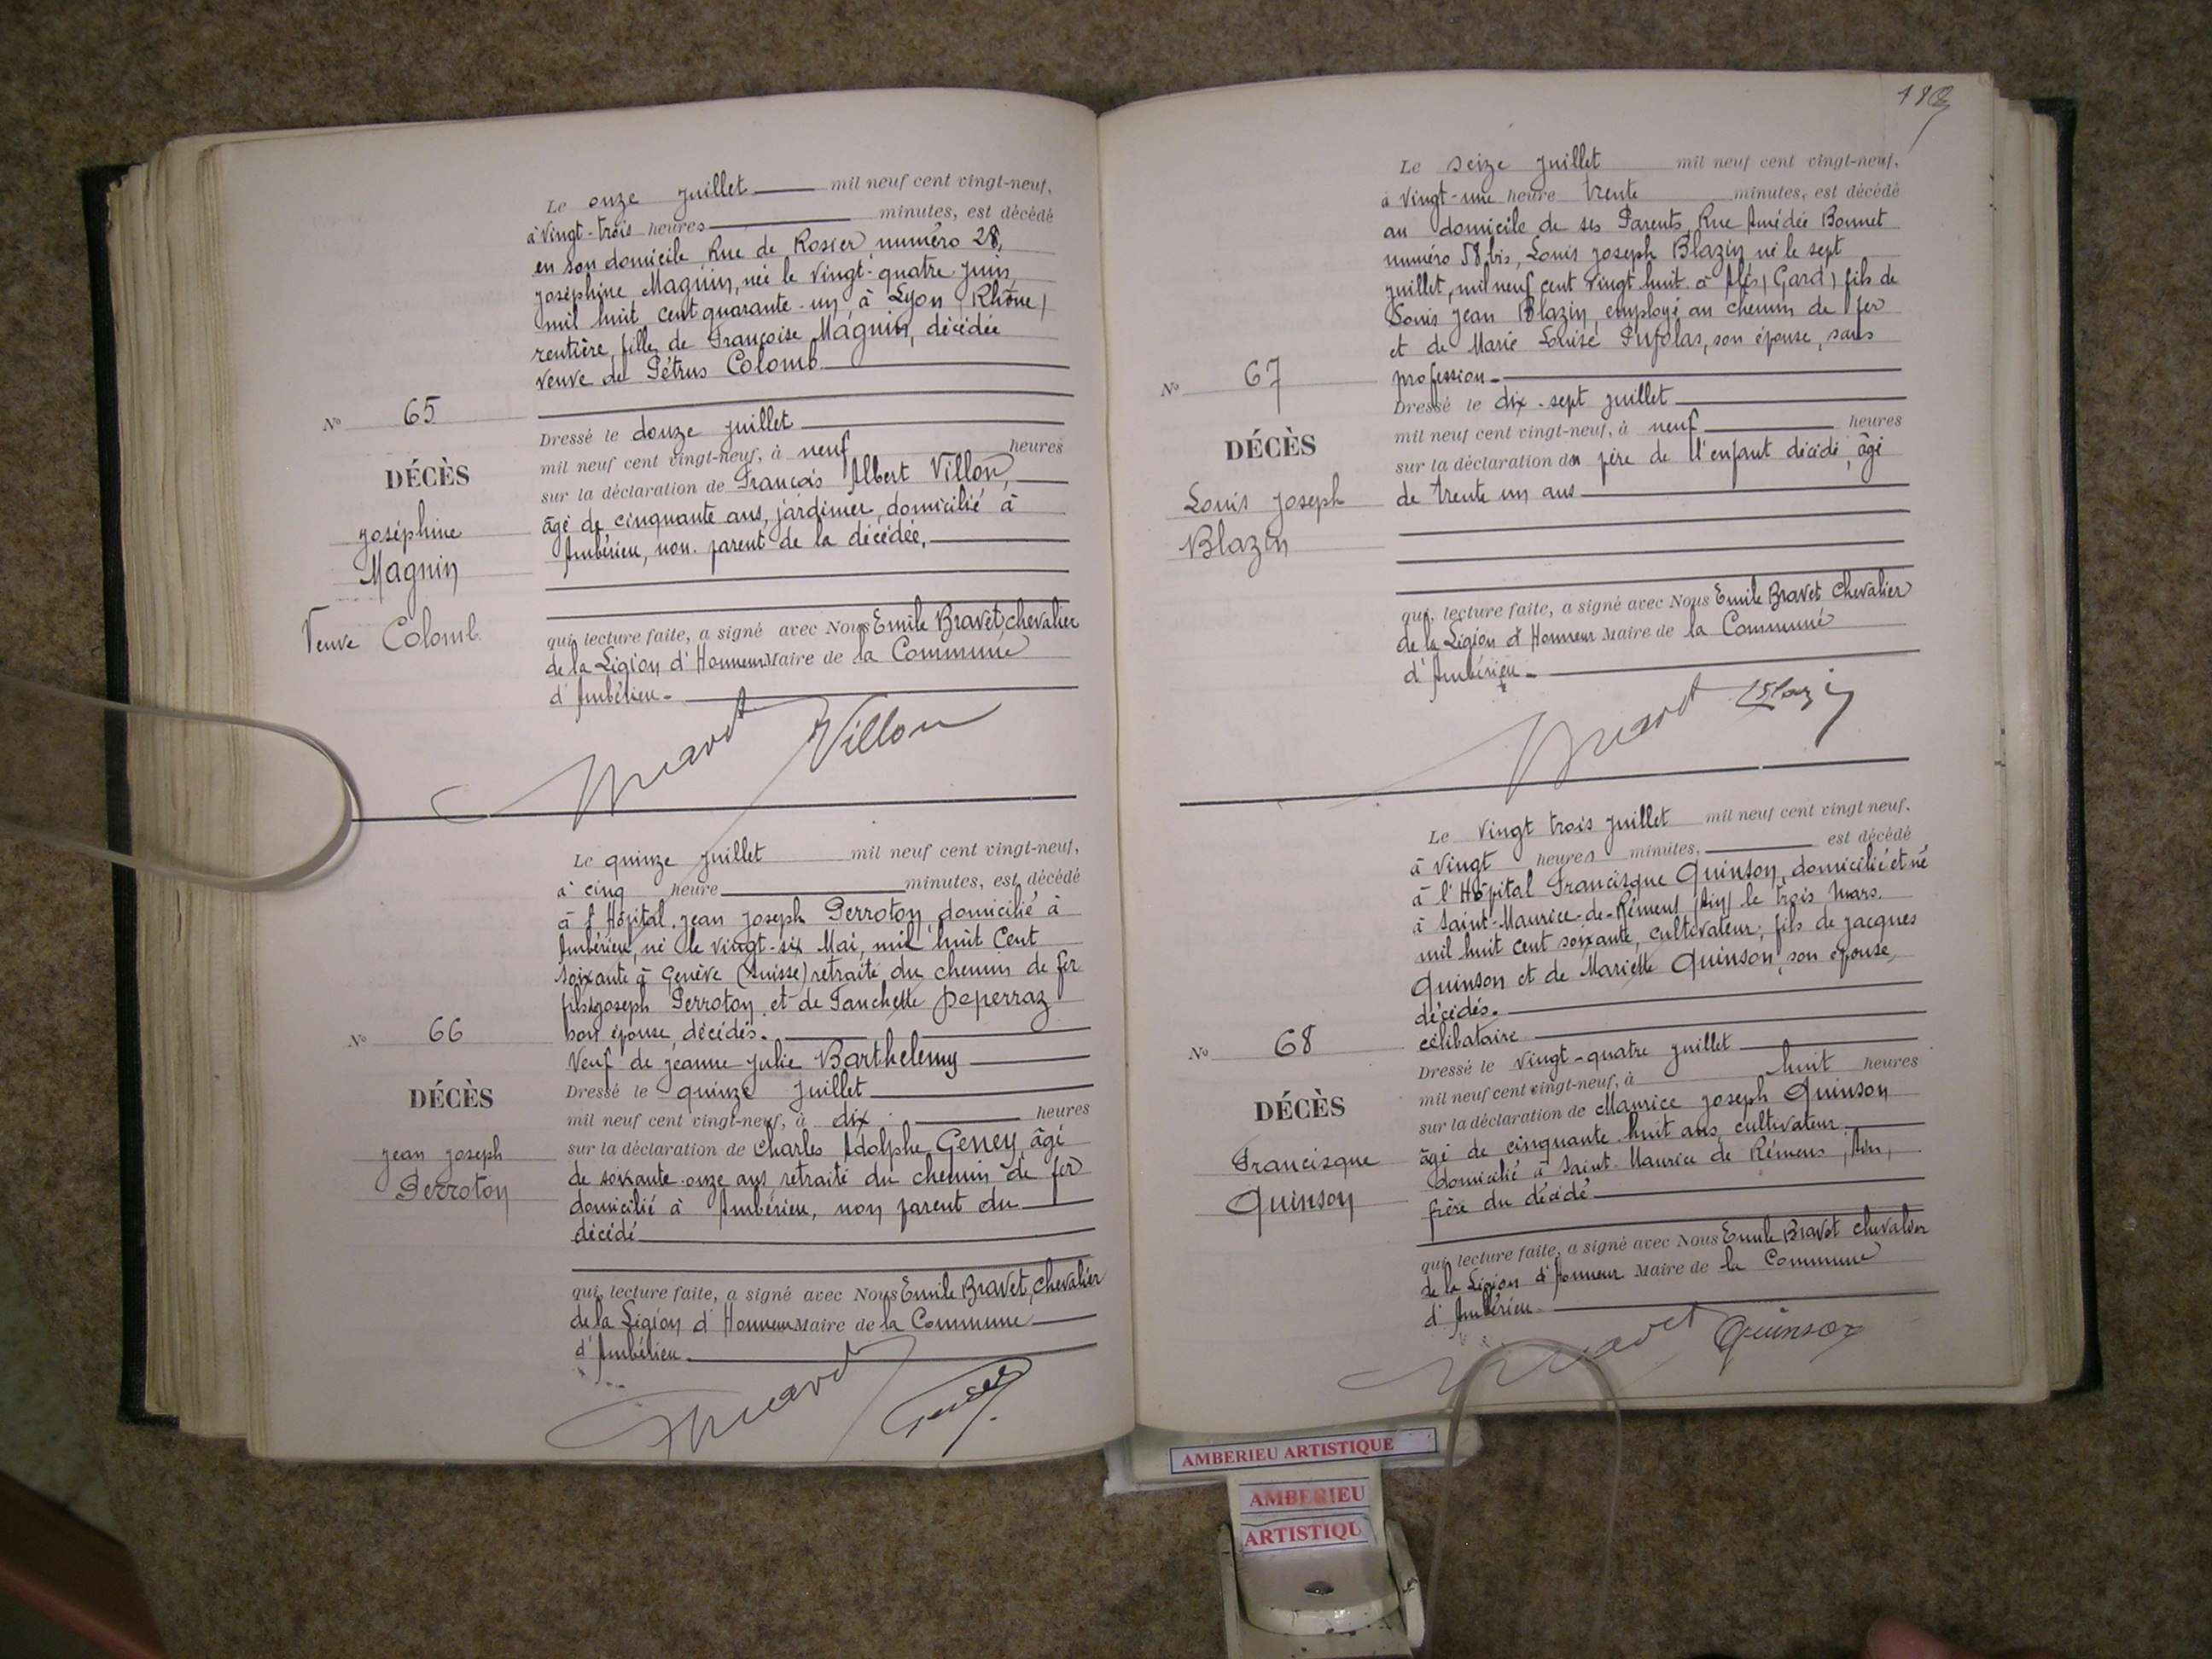 Le onze juillet mil neuf cent vingt-neuf,
à vingt-trois heures minutes, est décédé
en son domicile Rue de Rosier numéro 28,
Joséphine Magnin, née le vingt-quatre juin
mil huit cent quarante-un à Lyon (Rhône)
rentière, fille de Françoise Magnin, décédée
veuve de Pétrus Colomb
Nº 65
DÉCÈS
Joséphine
Magnin
Veuve Colomb
Dressé le douze juillet
mil neuf cent vingt-neuf, à neuf heures
sur la déclaration de François Albert Villon,
âgé de cinquante ans, jardinier, domicilié à
Ambérieu, non parent de la décédée,
qui, lecture faite, a signé avec Nous Emile Bravet, chevalier
de la Légion d'Honneur Maire de la Commune
d'Ambérieu.
Bravet Villon
Le quinze juillet mil neuf cent vingt-neuf,
à cinq heure minutes, est décédé
à l'Hôpital, Jean Joseph Perroton, domicilié à
Ambérieu, né le vingt-six Mai, mil huit Cent
soixante à Genève (Suisse) retraité du chemin de fer
fils de Joseph Perroton et de Fanchette Deperraz
son épouse, décédés.
Veuf de Jeanne Julie Barthelemy
Nº 66
DÉCÈS
Jean Joseph
Perroton
Dressé le quinze juillet
mil neuf cent vingt-neuf, à dix heures
sur la déclaration de Charles Adolphe Geney, âgé
de soixante-onze ans retraité du chemin de fer
domicilié à Ambérieu, non parent du
décédé
qui, lecture faite, a signé avec Nous Emile Bravet, chevalier
de la Légion d'Honneur Maire de la Commune
d'Ambérieu.
Bravet Geney
Le seize juillet mil neuf cent vingt-neuf,
à vingt-une heure trente minutes, est décédé
au domicile de ses Parents, Rue Amédée Bonnet
numéro 58 bis, Louis Joseph Blazin né le sept
juillet, mil neuf cent vingt huit à Alès (Gard) fils de
Louis Jean Blazin, employé au chemin de fer
et de Marie Louise Pufolas, son épouse, sans
profession.
Nº 67
DÉCÈS
Louis Joseph
Blazin
Dressé le dix-sept juillet
mil neuf cent vingt-neuf, à neuf heures
sur la déclaration du père de l'enfant décédé, âgé
de trente un ans
qui, lecture faite, a signé avec Nous Emile Bravet Chevalier
de la Légion d'Honneur Maire de la Commune
d'Ambérieu.
Bravet Blazin
Le vingt trois juillet mil neuf cent vingt neuf,
à vingt heures minutes, est décédé
à l'Hôpital Francisque Quinson, domicilié et né
à Saint-Maurice-de-Rémens (Ain) le trois Mars
mil huit cent soixante, cultivateur, fils de Jacques
Quinson et de Mariette Quinson, son épouse,
décédés.
célibataire
Nº 68
DÉCÈS
Francisque
Quinson
Dressé le vingt-quatre juillet
mil neuf cent vingt-neuf, à huit heures
sur la déclaration de Maurice Joseph Quinson
âgé de cinquante huit ans, cultivateur
domicilié à Saint-Maurice de Rémens (Ain)
frère du décédé
qui, lecture faite, a signé avec Nous Emile Bravet chevalier
de la Légion d'Honneur Maire de la Commune
d'Ambérieu.
Bravet Quinson
AMBERIEU ARTISTIQUE
AMBERIEU
ARTISTIQU